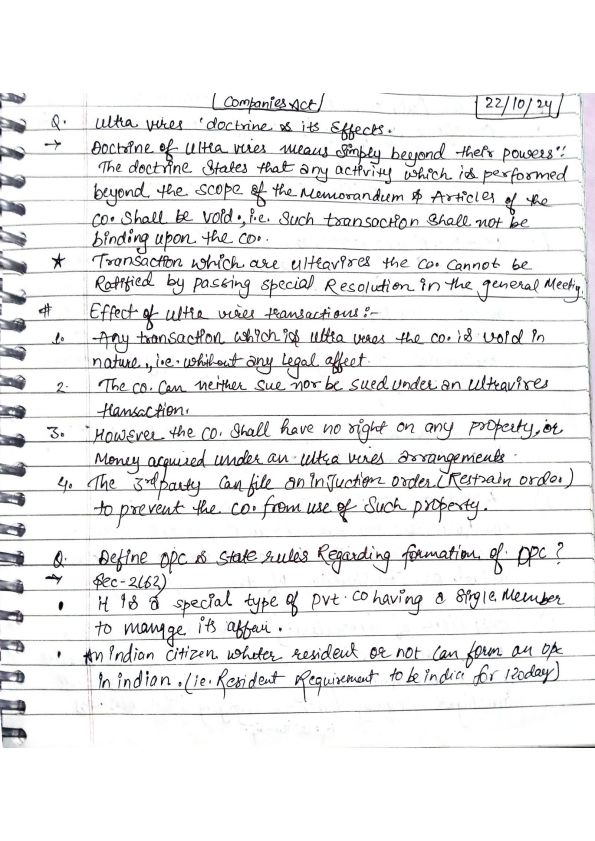 Companies Act
22/10/24
Q. Ultra vires 'doctrine & its Effects.
→ Doctrine of Ultra vires means simply beyond their powers".
The doctrine states that any activity which is performed
beyond the scope of the Memorandum & Articles of the
co. shall be void., i.e. Such transaction shall not be
binding upon the co..
★ Transaction which are ultravires the co. cannot be
Ratified by passing special Resolution in the general Meetig.
# Effect of ultra vires transactions:-
1. Any transaction which is ultra vires the co. is void in
nature., i.e. whithout any Legal affect.
2. The co. can neither sue nor be sued under an ultravires
transaction.
3. However the co. shall have no right on any property, or
Money acquired under an ultra vires arrangements.
4. The 3rd party can file an injuction order. (Restrain order.)
to prevent the co. from use of such property.
Q. Define OPC & state rules Regarding formation of OPC?
→ Sec-2(62)
• It is a special type of pvt. co having a single Member
to manage its affair.
• An indian citizen wheter resident or not can form an opc
in indian. (ie. Resident Requirement to be india for 120day)